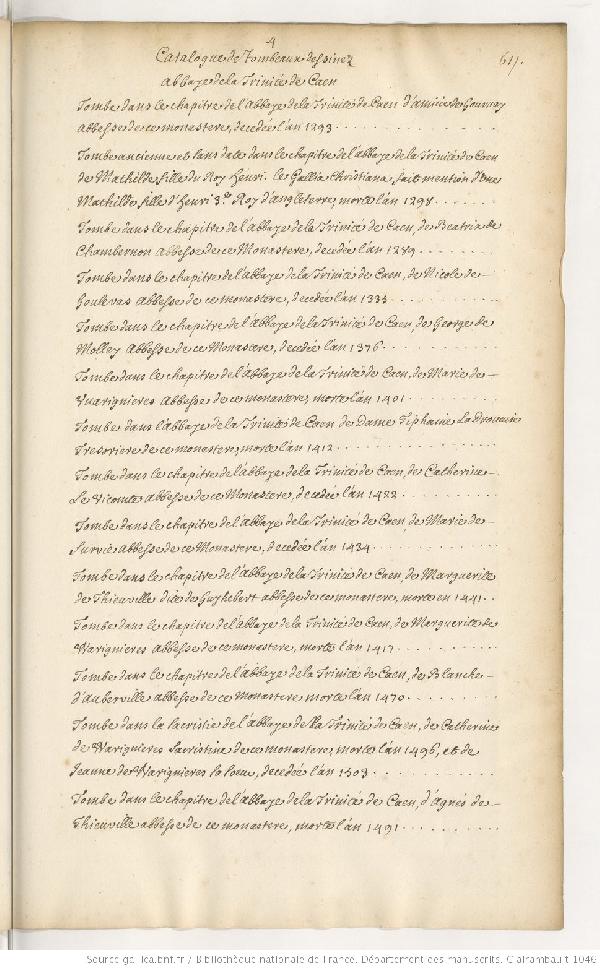 4
Catalogue de Tombeaux dessinez
617.
abbaye de la Trinité de Caen
Tombe dans le chapitre de l'Abbaye de la Trinité de Caen d'amicie de Gournay
Abbesse de ce monastere, decedée l'an 1293
Tombe ancienne et sans date dans le chapitre de l'abbaye de la Trinité de Caen
de Mathilde fille du Roy henri. le Gallia Christiana fait mention d'une
Mathilde fille d'henri 3e Roy d'angleterre, morte l'an 1298
Tombe dans le chapitre de l'abbaye de la Trinité de Caen, de Beatrix de
Chambernon abbesse de ce Monastere, decedée l'an 1289
Tombe dans le chapitre de l'abbaye de la Trinité de Caen, de Nicole de
Goulevas abbesse de ce monastere, decedée l'an 1335
Tombe dans le chapitre de l'Abbaye de la Trinité de Caen, de George de
Molley Abbesse de ce Monastere, decedée l'an 1376
Tombe dans le chapitre de l'abbaye de la Trinité de Caen, de Marie de
Vuarignieres Abbesse de ce monastere, morte l'an 1401
Tombe dans l'abbaye de la Trinité de Caen de Dame Tiphaine
Tresoriere de ce monastere, morte l'an 1412
Tombe dans le chapitre de l'abbaye de la Trinité de Caen, de Catherine
Le Vicomte abbesse de ce Monastere, decedée l'an 1422
Tombe dans le chapitre de l'abbaye de la Trinité de Caen, de Marie de
Survie abbesse de ce Monastere, decedée l'an 1434
Tombe dans le chapitre de l'abbaye de la Trinité de Caen, de Marguerite
de Thieuville dite de Guyhebert abbesse de ce monastere, morte en 1441
Tombe dans le chapitre de l'abbaye de la Trinité de Caen, de Marguerite de
Varignieres abbesse de ce monastere, morte l'an 1417
Tombe dans le chapitre de l'abbaye de la Trinité de Caen, de Blanche
d'auberville abbesse de ce Monastere morte l'an 1470
Tombe dans la sacristie de l'abbaye de la Trinité de Caen, de Catherine
de Warignieres sacristine de ce monastere, morte l'an 1496, et de
Jeanne de Warignieres sa soeur, decedée l'an 1503
Tombe dans le chapitre de l'abbaye de la Trinité de Caen, d'agnés de
Thieuville abbesse de ce monastere, morte l'an 1491
Source gallica.bnf.fr / Bibliothèque nationale de France. Département des manuscrits. Clairambault 1046